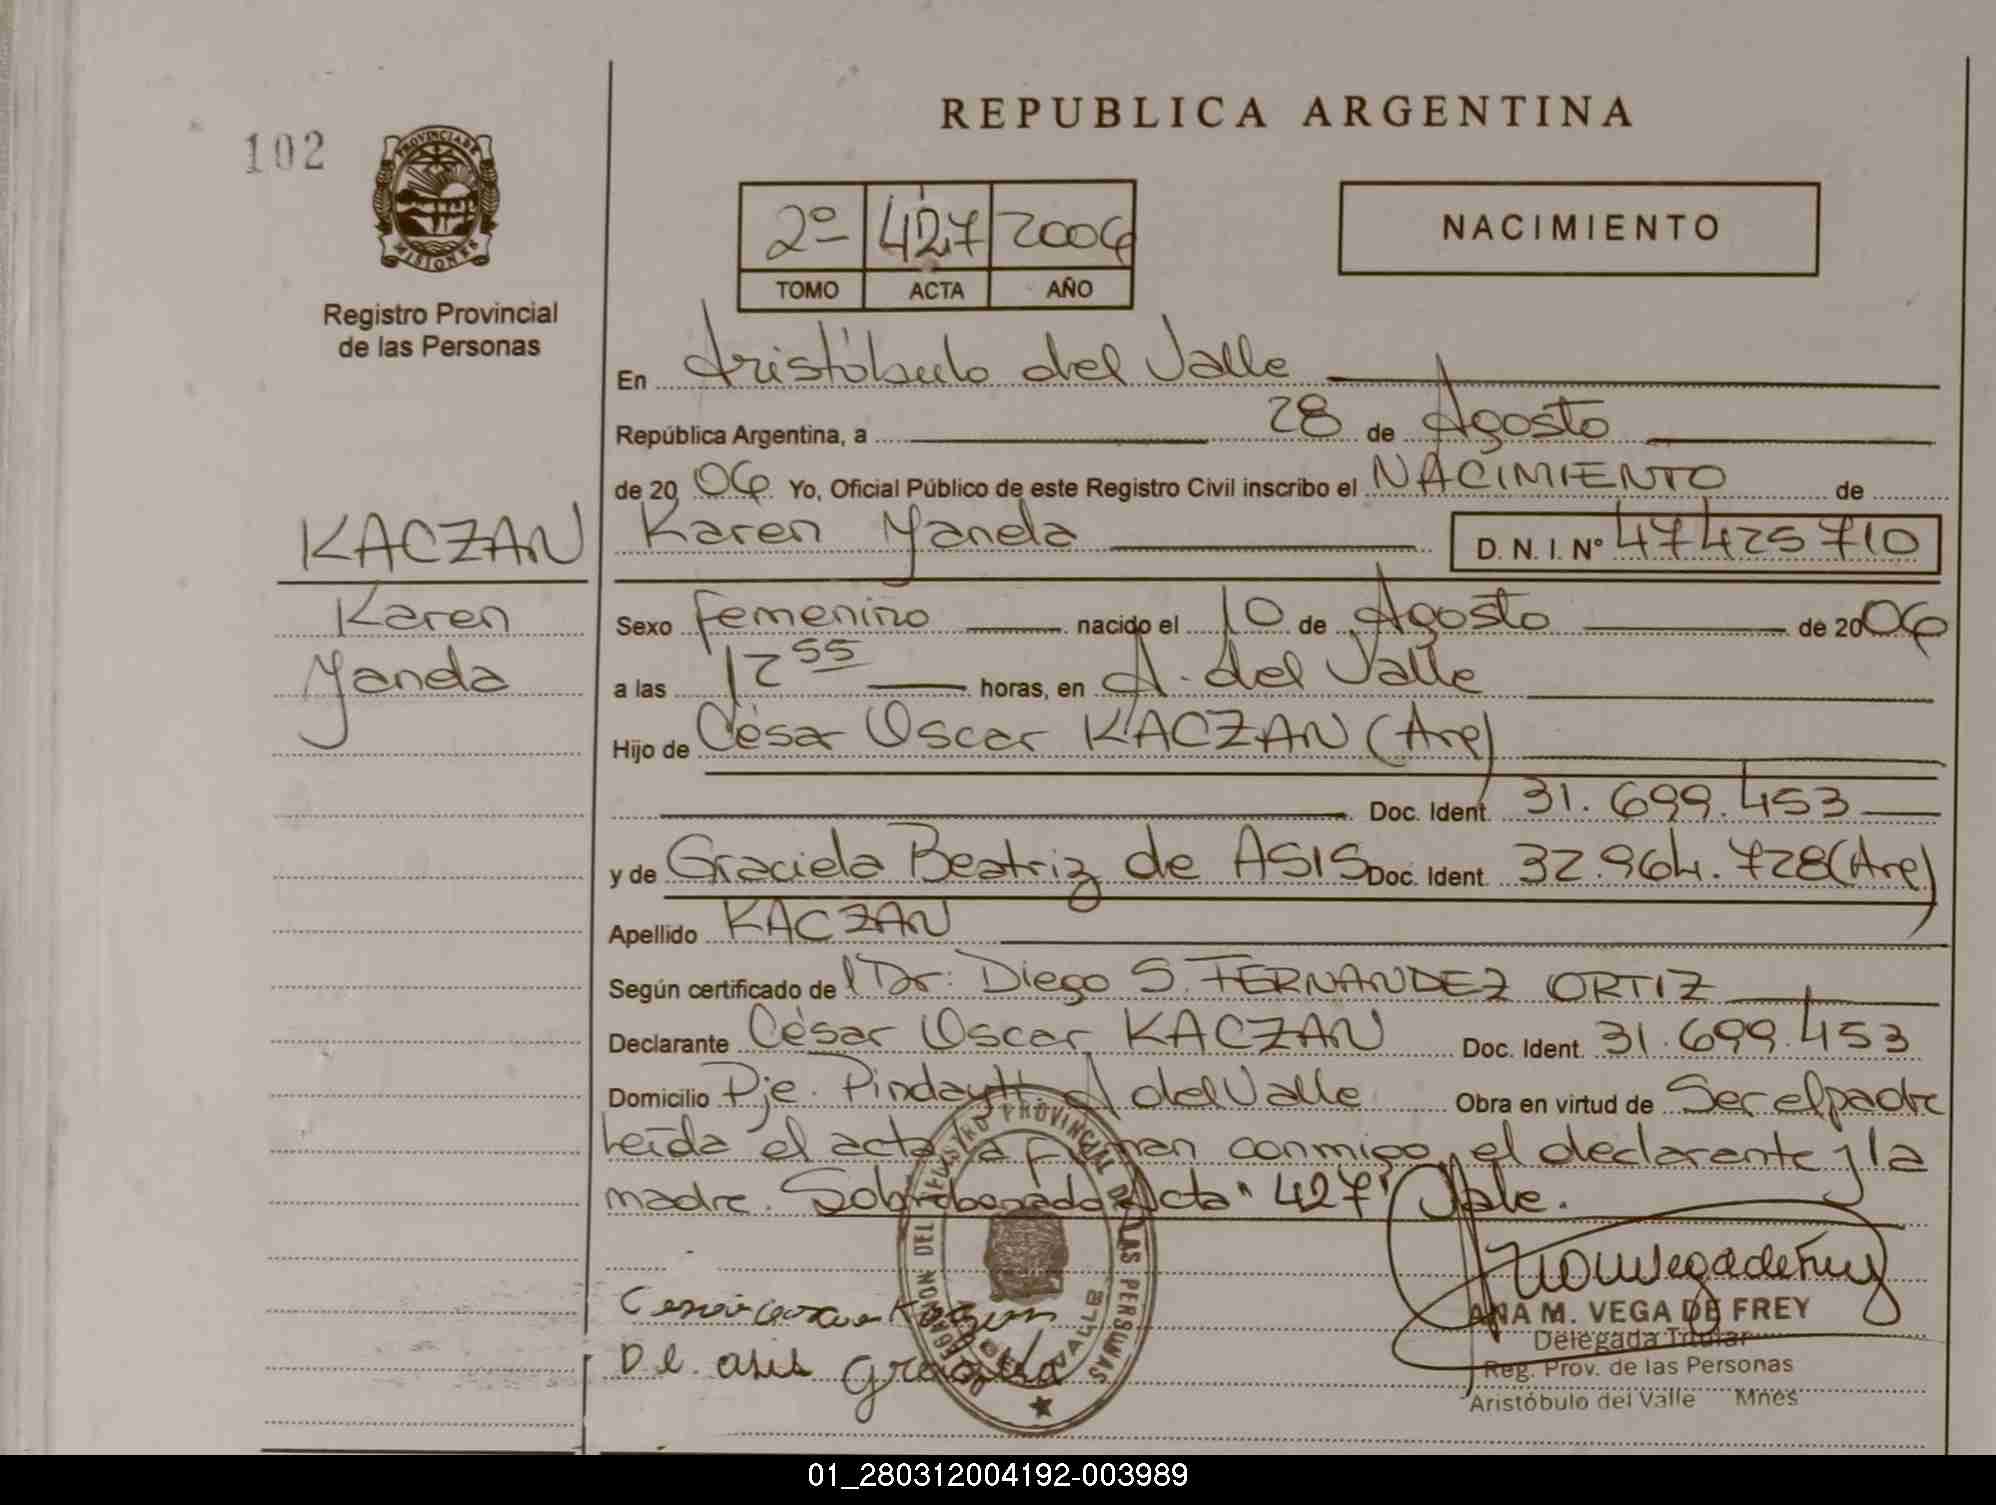 REPUBLICA ARGENTINA
102
PROVINCIA DE
MISIONES
Registro Provincial
de las Personas
2º 427 2006
TOMO ACTA AÑO
NACIMIENTO
En Aristóbulo del Valle
República Argentina, a 28 de Agosto
de 20 06 Yo, Oficial Público de este Registro Civil inscribo el NACIMIENTO de
KACZAN
Karen
Yanela
Karen Yanela D. N. I. Nº 47425710
Sexo femenino nacido el 10 de Agosto de 2006
a las 12 55 horas, en A. del Valle
Hijo de César Oscar KACZAN (Arg)
Doc. Ident. 31.699.453
y de Graciela Beatriz de ASIS Doc. Ident. 32.964.728 (Arg)
Apellido KACZAN
Según certificado de l Dr: Diego S. FERNANDEZ ORTIZ
Declarante César Oscar KACZAN Doc. Ident. 31.699.453
Domicilio Pje. Pindaytí A del Valle Obra en virtud de Ser el padre
Leída el acta la firman conmigo el declarante y la
madre. Sobreborrado Acta "427" Vale.
DELEGACION DEL REGISTRO PROVINCIAL DE LAS PERSONAS
VALLE
De asis Graciela
Ana Vega de Frey
ANA M. VEGA DE FREY
Delegada Titular
Reg. Prov. de las Personas
Aristóbulo del Valle Mnes
01_280312004192-003989